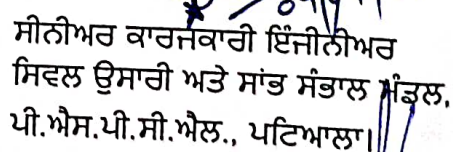 ਸੀਨੀਅਰ ਕਾਰਜਕਾਰੀ ਇੰਜੀਨੀਅਰ
ਸਿਵਲ ਉਸਾਰੀ ਅਤੇ ਸਾਂਭ ਸੰਭਾਲ ਮੰਡਲ,
ਪੀ.ਐਸ.ਪੀ.ਸੀ.ਐਲ., ਪਟਿਆਲਾ।